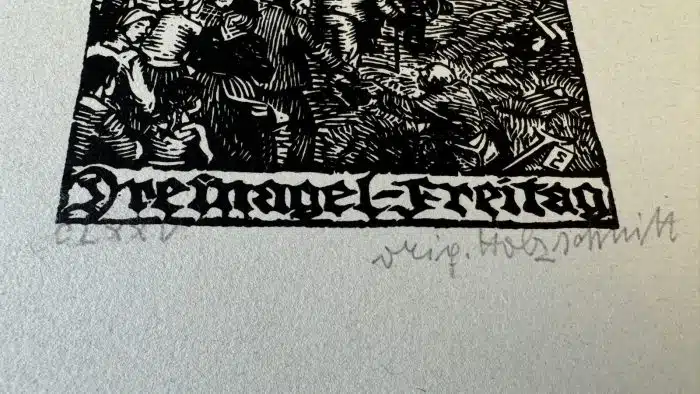 Dreinagel-Freitag
CLXXV
orig. Holzschnitt